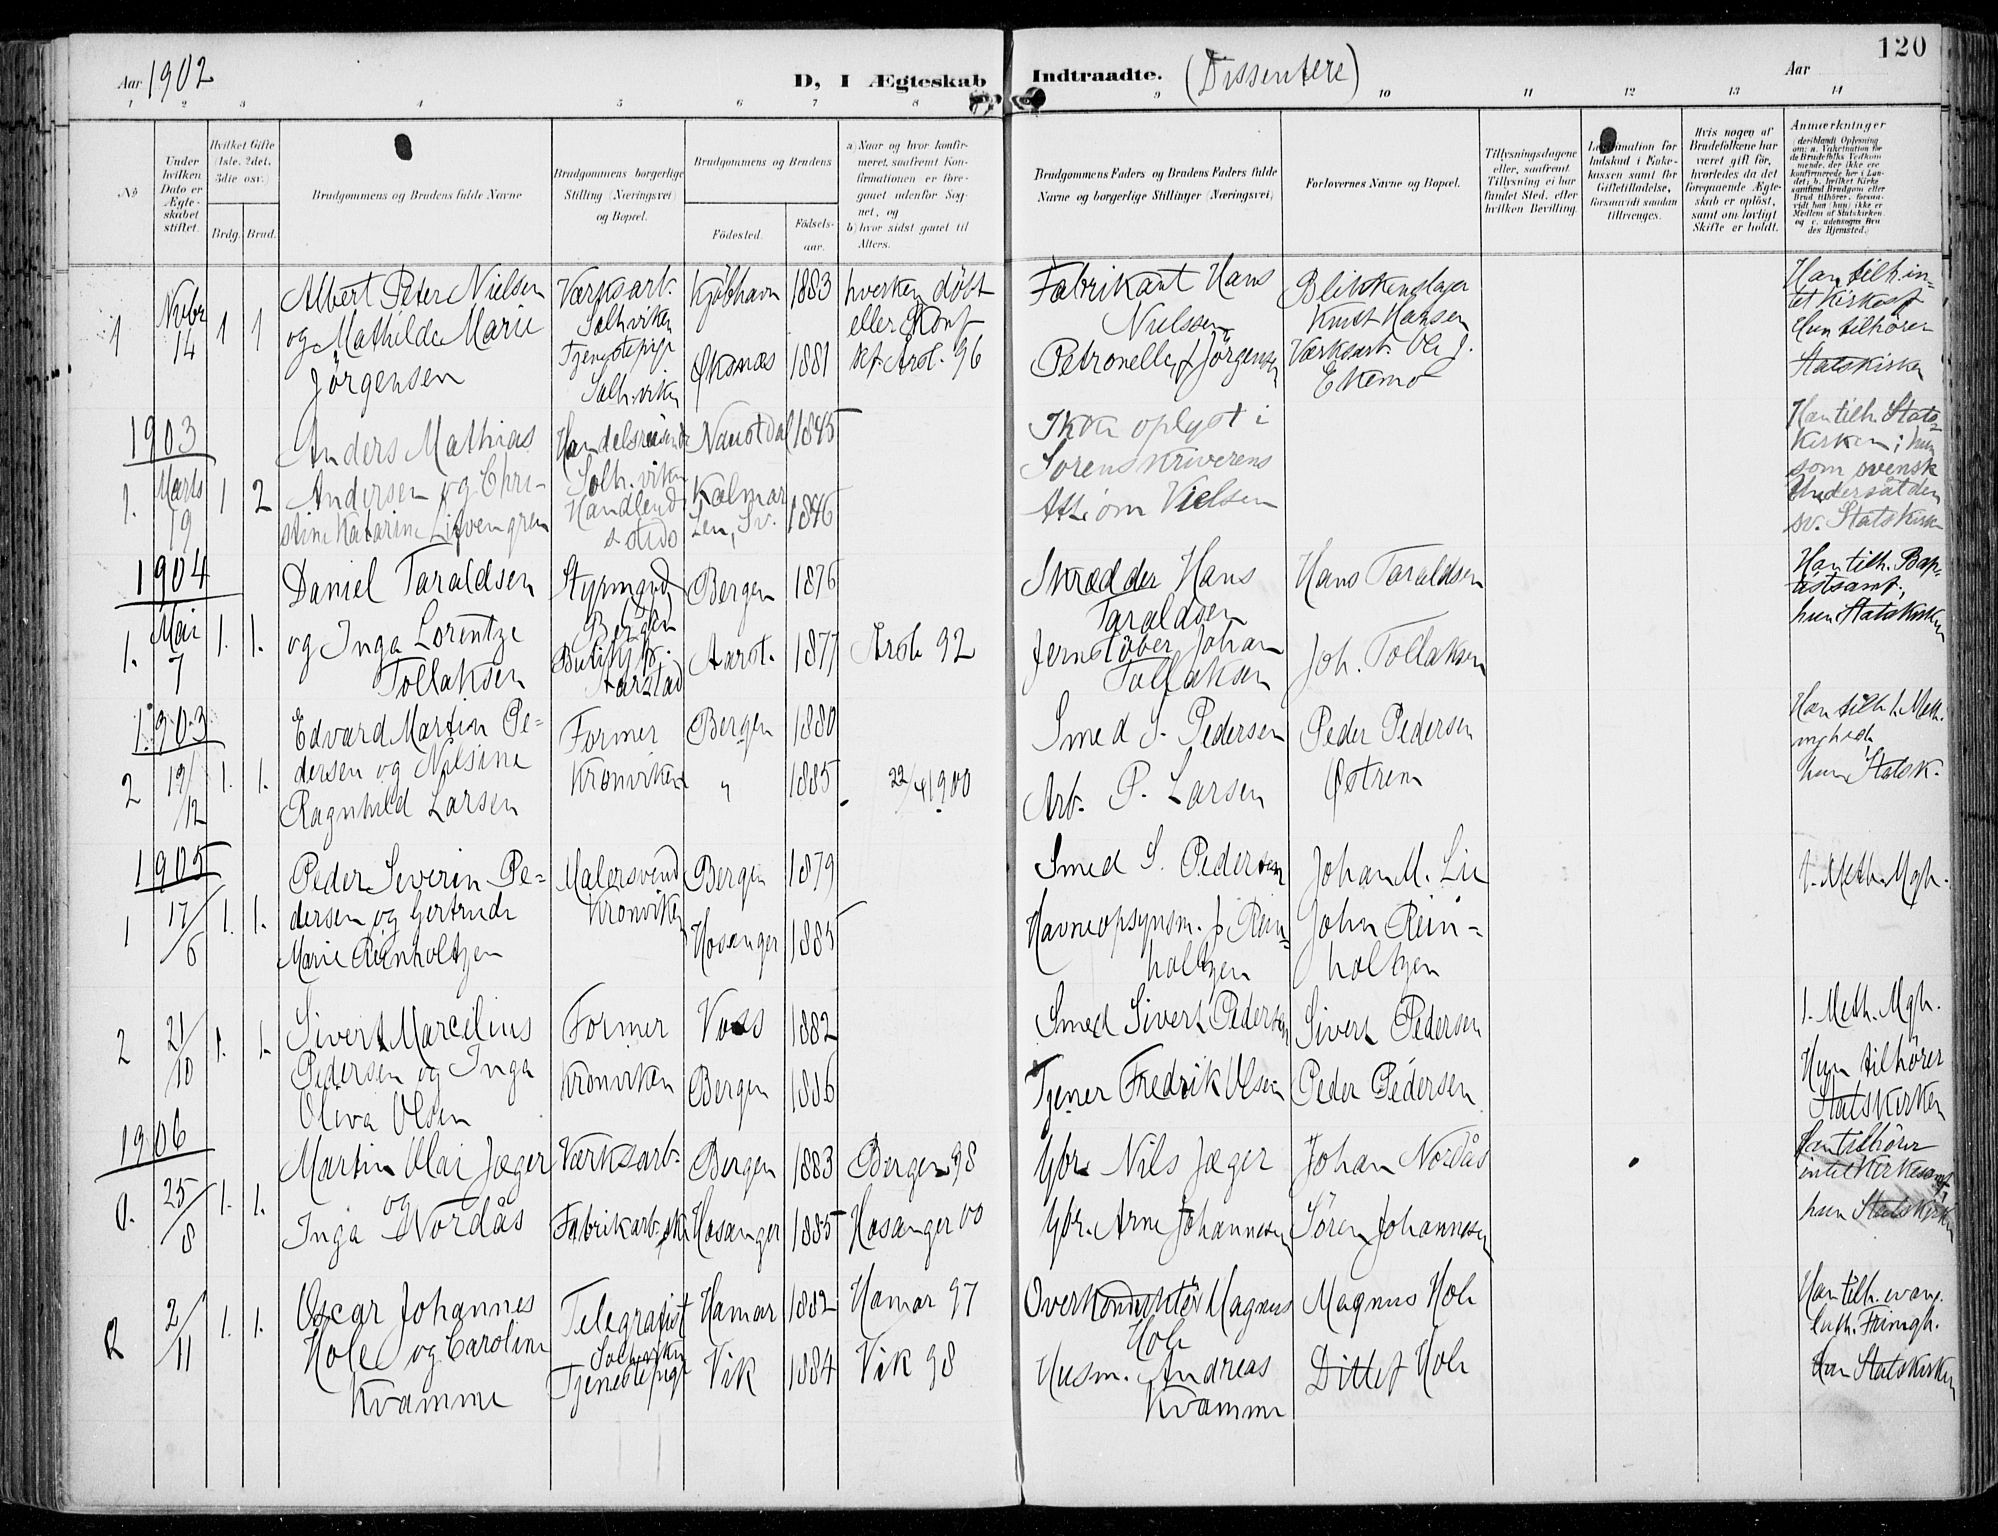 120
Aar 1902
D, I Ægteskab Indtraadte. (Dissentere)
Aar
1 2 3 4 5 6 7 8 9 10 11 12 13 14
No
Under hvilken Dato er Ægteskabet stiftet.
Hvilket Gifte (1ste, 2det, 3die osv.)
Brdg. Brud.
Brudgommens og Brudens fulde Navne
Brudgommens borgerlige Stilling (Næringsvei) og Bopæl.
Brudgommens og Brudens
Fødested. Fødselsaar.
a) Naar og hvor konfirmeret, saafremt Konfirmationen er foregaaet udenfor Sognet, og
b) hvor sidst gaaet til Alters.
Brudgommens Faders og Brudens Faders fulde Navne og borgerlige Stillinger (Næringsvei)
Forlovernes Navne og Bopæl.
Tillysningsdagene eller, saafremt Tillysning ei har fundet Sted, efter hvilken Bevilling.
for Indskud i Enkekassen samt for Giftetilladelse, forsaavidt saadan tiltrænges.
Hvis nogen af Brudefolkene har været gift før, hvorledes da det foregaaende Ægteskab er opløst, samt om lovligt Skifte er holdt.
Anmærkninger
1 Nvbr 14 1 1
Albert Peter Nielsen
og Mathilde Marie
Jörgensen
Værksarb.
Solh.viken
Tjenestepige
Solh.viken
Kjöbhavn 1883
Øksnæs 1881
hverken döbt
eller Konf
kf. Arst. 96
Fabrikant Hans
Nielssen
Petronelle Jörgensen
Blikkenslager
Knut Hansen
Værksarb. Ole J.
Ekemo
Han tilh. in-
tet Kirkesf
Hun tilhörer
Statskirken
1903
1. Marts 19 1 2
Anders Mathias
Andersen og Chri-
stine Katarine
Handelsreisende
Solh.viken
Handlend
Naustdal 1845
Kalmar
Len, Sv. 1846
Ikke oplyst i
Sorenskriverens
Att. om Vielsen
Han tilh. Stats-
kirken; hun
som svensk
Undersåt den
sv. Statskirke
1904
1. Mai 7 1. 1.
Daniel Taraldsen
og Inga Lorentze
Tollaksen
Styrmand
Bergen
Årstad
Bergen 1876
Aarst. 1877
Arst. 92
Skrædder Hans
Taraldsen
Jernstöber Johan
Tollaksen
Hans Taraldsen
Joh. Tollaksen
Han tilh. Bap-
tistsamf.,
hun Statskirken
1903
2 19/12 1. 1.
Edvard Martin Pe-
dersen og Nilsine
Ragnhild Larsen
Former
Kronviken
Bergen 1880
" 1885
22/4 1900
Smed S. Pedersen
Arb. P. Larsen
Peder Pedersen
Østrem
Han tilh 1. Meth.
mghed,
hun Statsk.
1905
1 17/6 1. 1.
Peder Severin Pe-
dersen og Gertrude
Marie Reinholtzen
Malersvend
Kronviken
Bergen 1879
Hosanger 1885
Smed S. Pedersen
Havneopsynsm. P Rein-
holtzen
Johan M. Lie
John Rein-
holtzen
1. Meth. Mgh.
2 21/10 1. 1.
Sivert Marcelius
Pedersen og Inga
Oliva Olsen
Former
Kronviken
Voss 1882
Bergen 1886
Smed Sivert Pedersen
Tjener Fredrik Olsen
Sivert Pedersen
Peder Pedersen
1. Meth. Mgh.
Hun tilhörer
Statskirken
1906
25/8 1. 1.
Martin Olai Jæger
og
Inga Nordås
Værksarb.
Fabrikarb.ske
Bergen 1883
Hosanger 1885
Bergen 98
Hosanger 00
Gbr. Nils Jæger
Gbr. Arne Johannesen
Johan Nordås
Sören Johannesen
Han tilhörer
intet Kirkesamf,
hun Statskirken
2 2/11 1. 1.
Oscar Johannes
Hole og Caroline
Kvamme
Telegrafist
Solh.viken
Tjenestepige
Hamar 1882
Vik 1884
Hamar 97
Vik 98
Overkonduktör Magnus
Hole
Husm. Andreas
Kvamme
Magnus Hole
Ditlef Hole
Han tilh. evang.
luth. Frimgh.
hun Statskirken